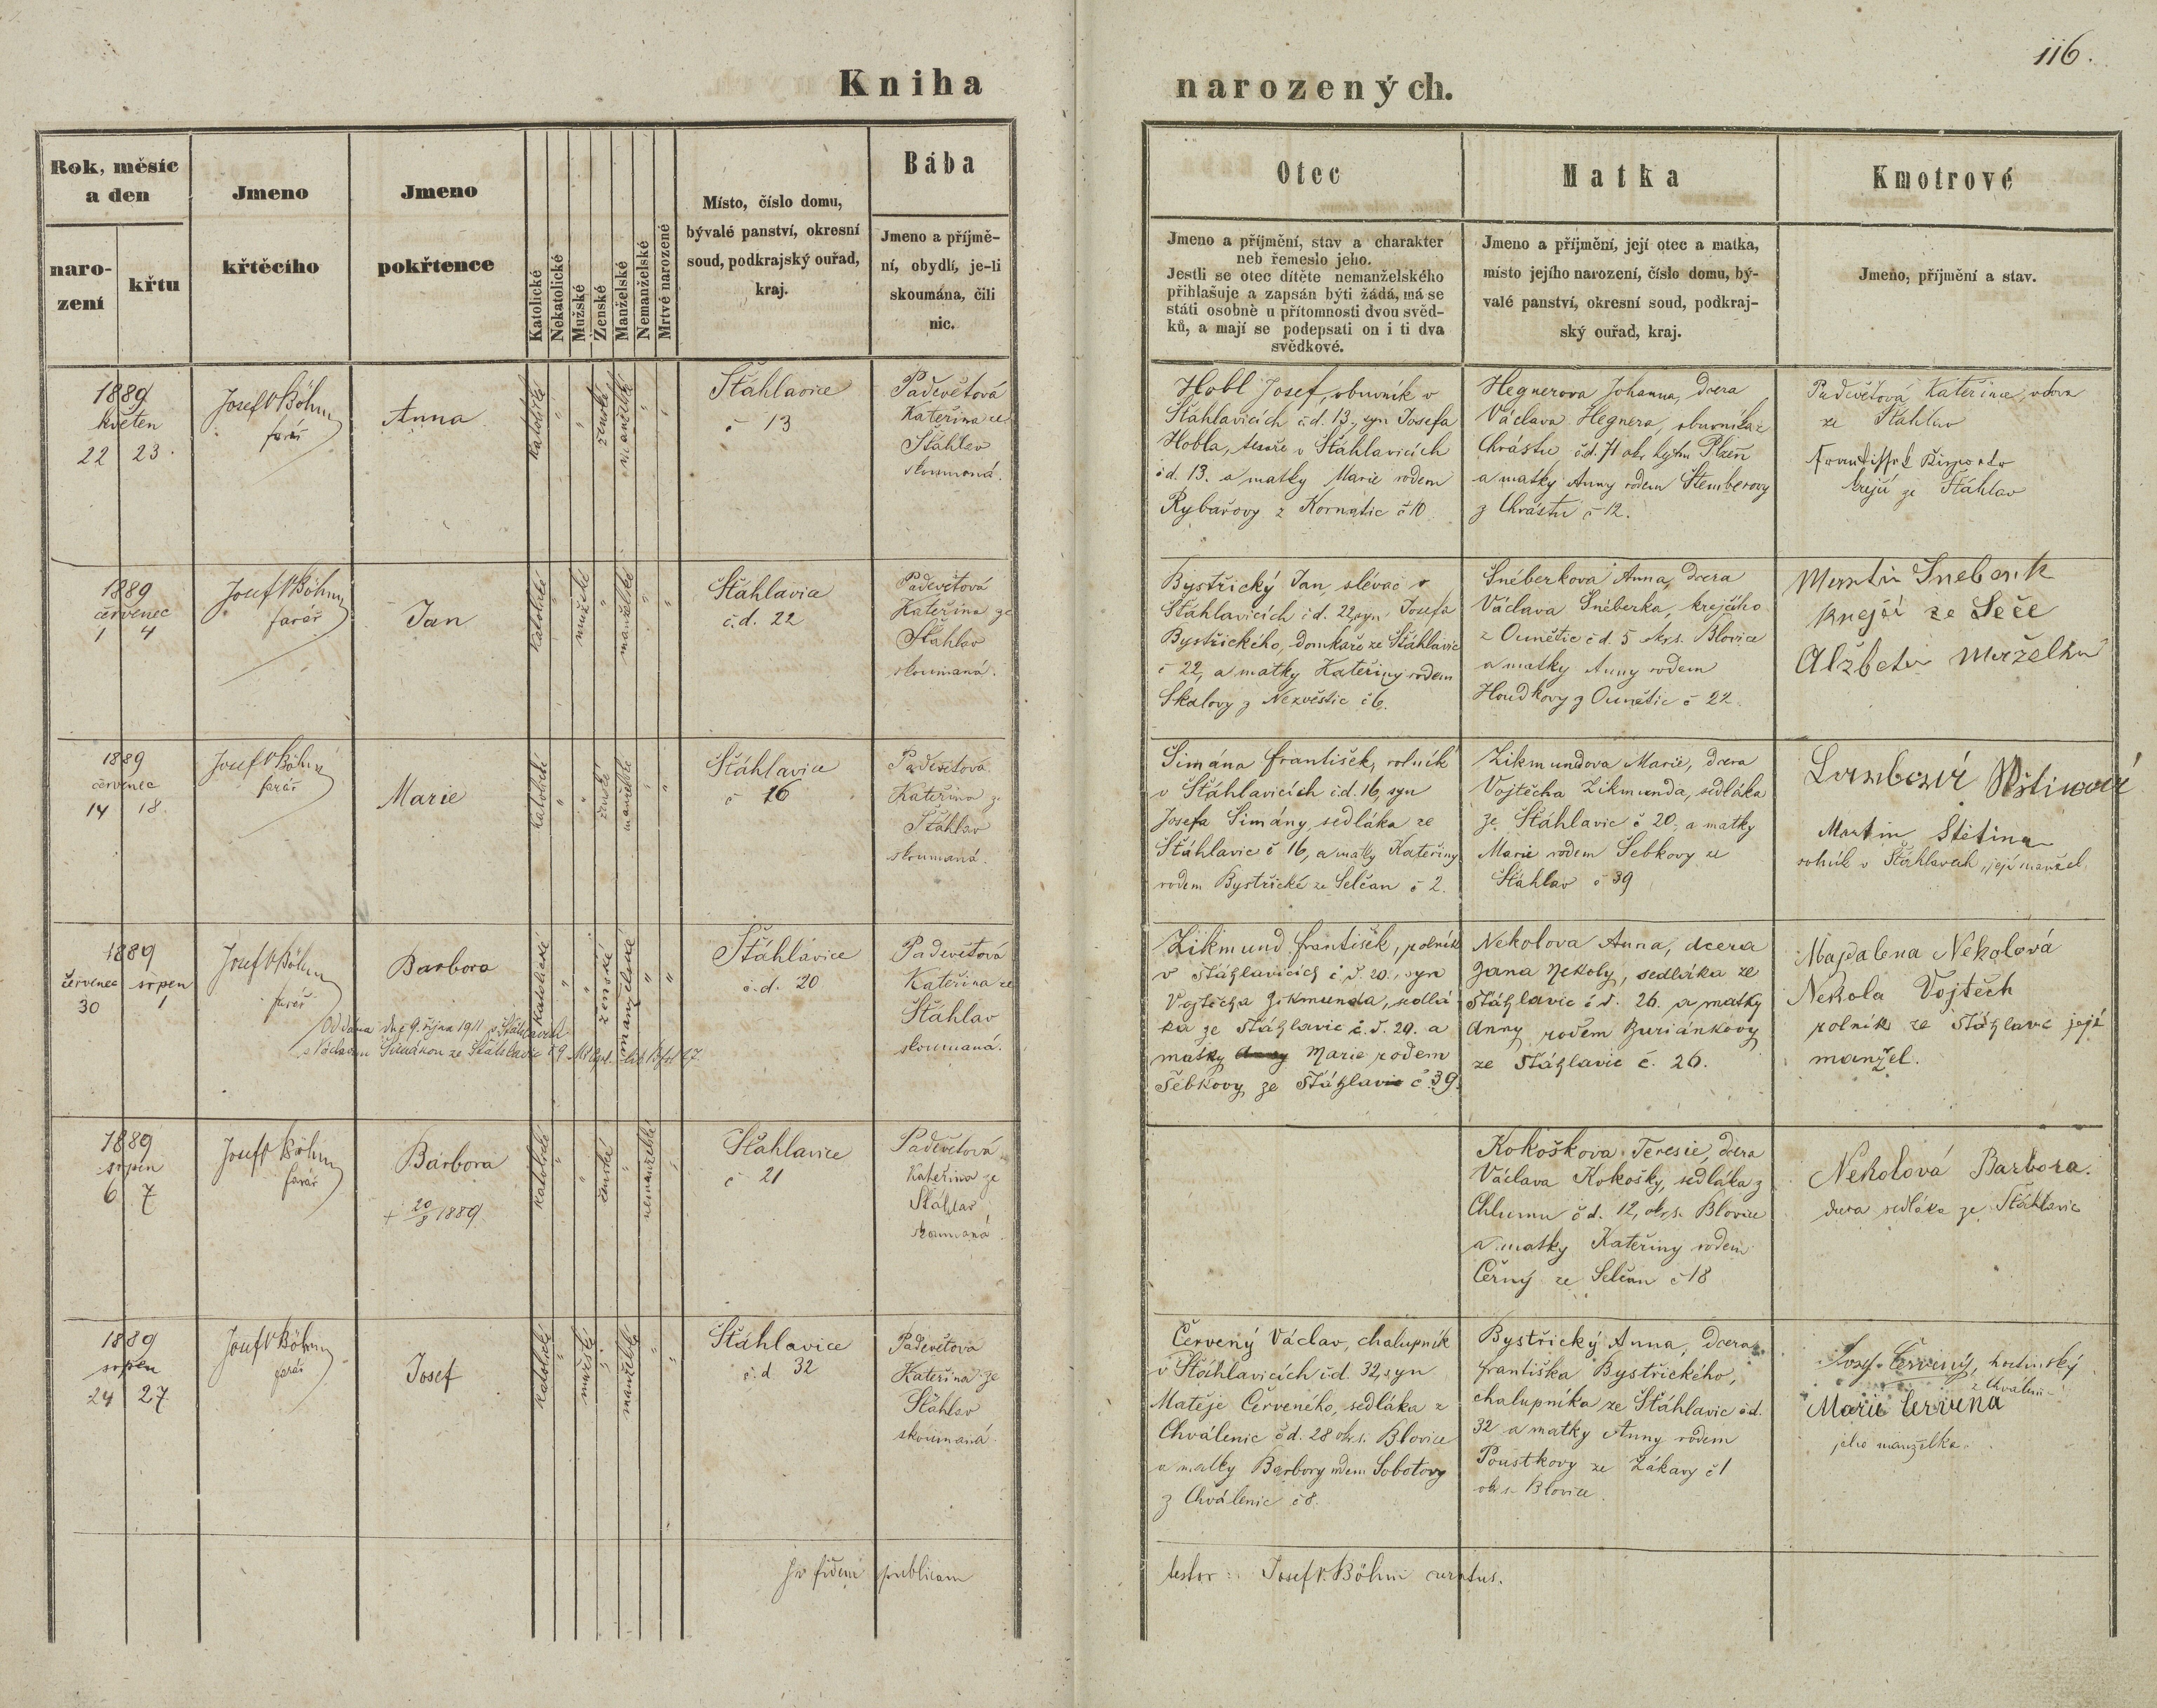 116.
Kniha narozených.
Rok, měsíc
a den
naro-
zení
křtu
Jmeno
křtěcího
Jmeno
pokřtence
Katolické
Nekatolické
Mužské
Ženské
Manželské
Nemanželské
Mrtvě narozené
Místo, číslo domu,
bývalé panství, okresní
soud, podkrajský ouřad,
kraj.
Bába
Jmeno a příjmě-
ní, obydlí, je-li
skoumána, čili
nic.
Otec
Jmeno a příjmění, stav a charakter
neb řemeslo jeho.
Jestli se otec dítěte nemanželského
přihlašuje a zapsán býti žádá, má se
státi osobně u přítomnosti dvou svěd-
ků, a mají se podepsati on i ti dva
svědkové.
Matka
Jmeno a příjmění, její otec a matka,
místo jejího narození, číslo domu, bý-
valé panství, okresní soud, podkraj-
ský ouřad, kraj.
Kmotrové
Jmeno, příjmění a stav.
1889
květen
22 23.
Josef V Böhm
farář
Anna
katolické
"
"
ženské
manželské
"
"
Šťáhlavice
č 13
Paděvětová
Kateřina ze
Šťáhlav
skoumaná.
Hobl Josef, obuvník v
Šťáhlavicích č.d. 13, syn Josefa
Hobla, tesaře v Šťáhlavicích
č d. 13. a matky Marie rodem
Rybářovy z Kornatic č 10
Hegnerova Johanna, dcera
Václava Hegnera, obuvníka z
Chrástu č.d. 71 okr. hejtm Plzeň
a matky Anny rodem Štemberovy
z Chrástu č 12.
Paděvětová Kateřina, vdova
ze Šťáhlav
krejčí ze Šťáhlav
1889
červenec
1 4
Josef V Böhm
farář
Jan
katolické
"
mužské
"
manželské
"
"
Šťáhlavice
č.d. 22
Paděvětová
Kateřina ze
Šťáhlav
skoumaná.
Bystřický Jan, slévač v
Šťáhlavicích č d. 22, syn Josefa
Bystřického, domkaře ze Šťáhlavic
č 22, a matky Kateřiny rodem
Skalovy z Nezvěstic č 6.
Šnéberkova Anna, dcera
Václava Šnéberka, krejčího
z Ounětic č d. 5 okrs. Blovice
a matky Anny rodem
Houdkovy z Ounětic č 22.
Martin Šneberk
krejčí ze Seče
Alžběta Manželka
1889
červenec
14 18.
Josef V Böhm
farář
Marie
katolické
"
"
ženské
manželské
"
"
Šťáhlavice
č 16
Paděvětová
Kateřina z
Šťáhlav
skoumaná.
Šimána František, rolník
v Šťáhlavicích č.d. 16, syn
Josefa Šimány, sedláka ze
Šťáhlavic č 16, a matky Kateřiny
rodem Bystřické ze Selčan č 2.
Zikmundova Marie, dcera
Vojtěcha Zikmunda, sedláka
ze Šťáhlavic č 20. a matky
Marie rodem Šebkovy ze
Šťáhlav č 39
Martin Štětina
rolník v Šťáhlavech, její manžel.
1889
červenec srpen
30 1
Josef V Böhm
farář
Barbora
Oddána dne 9. října 1911 v Šťáhlavích
s Václavem Šimánou ze Šťáhlavic č 9
katolické
"
"
ženské
manželské
"
"
Šťáhlavice
č.d. 20
Paděvětová
Kateřina ze
Šťáhlav
skoumaná.
Zikmund František, rolník
v Šťáhlavicích č.d. 20., syn
Vojtěcha Zikmunda, sedlá-
ka ze Šťáhlavic č.d. 20. a
matky Anny Marie rodem
Šebkovy ze Šťáhlavic č. 39.
Nekolova Anna, dcera
Jana Nekoly, sedláka ze
Šťáhlavic č d. 26. a matky
Anny rodem Buriánkovy
ze Šťáhlavic č. 26.
Majdalena Nekolová
Nekola Vojtěch
rolník ze Šťáhlavic její
manžel.
1889
srpen
6 7
Josef V Böhm
farář
Barbora
+ 20/8 1889
katolické
"
"
ženské
"
nemanželské
"
Šťáhlavice
č 21
Paděvětová
Kateřina ze
Šťáhlav
skoumaná.
Kokoškova Teresie, dcera
Václava Kokošky, sedláka z
Chlumu č d. 12, okrs. Blovice
a matky Kateřiny rodem
Černý ze Selčan č 18
Nekolová Barbora.
dcera sedláka ze Šťáhlavic
1889
srpen
24 27
Josef V Böhm
farář
Josef
katolické
"
mužské
"
manželské
"
"
Šťáhlavice
č.d 32
Paděvětova
Kateřina ze
Šťáhlav
skoumaná.
Červený Václav, chalupník
v Šťáhlavicích č.d. 32, syn
Matěje Červeného, sedláka z
Chválenic č d. 28 okr. s. Blovice
a matky Barbory rodem Sobotovy
z Chválenic č 8.
Bystřický Anna, dcera
Františka Bystřického,
chalupníka ze Šťáhlavic č d.
32 a matky Anny rodem
Poustkovy ze Žákavy č 1
okr s. Blovice
Josef Červený, hostinský
z Chválenic
Marie Červená
jeho manželka.
In fidem publicam
testor: Josef V. Böhm curatus.